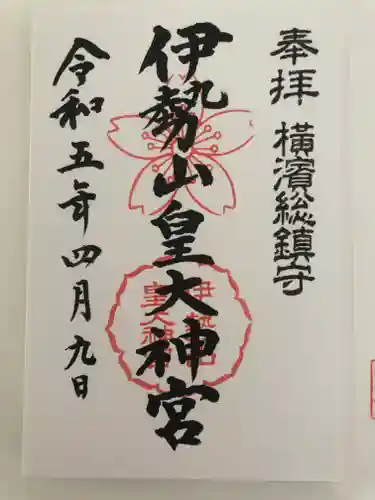 奉拝 橫濱総鎮守
伊勢山皇大神宮
伊勢山
皇大神宮
令和五年四月九日